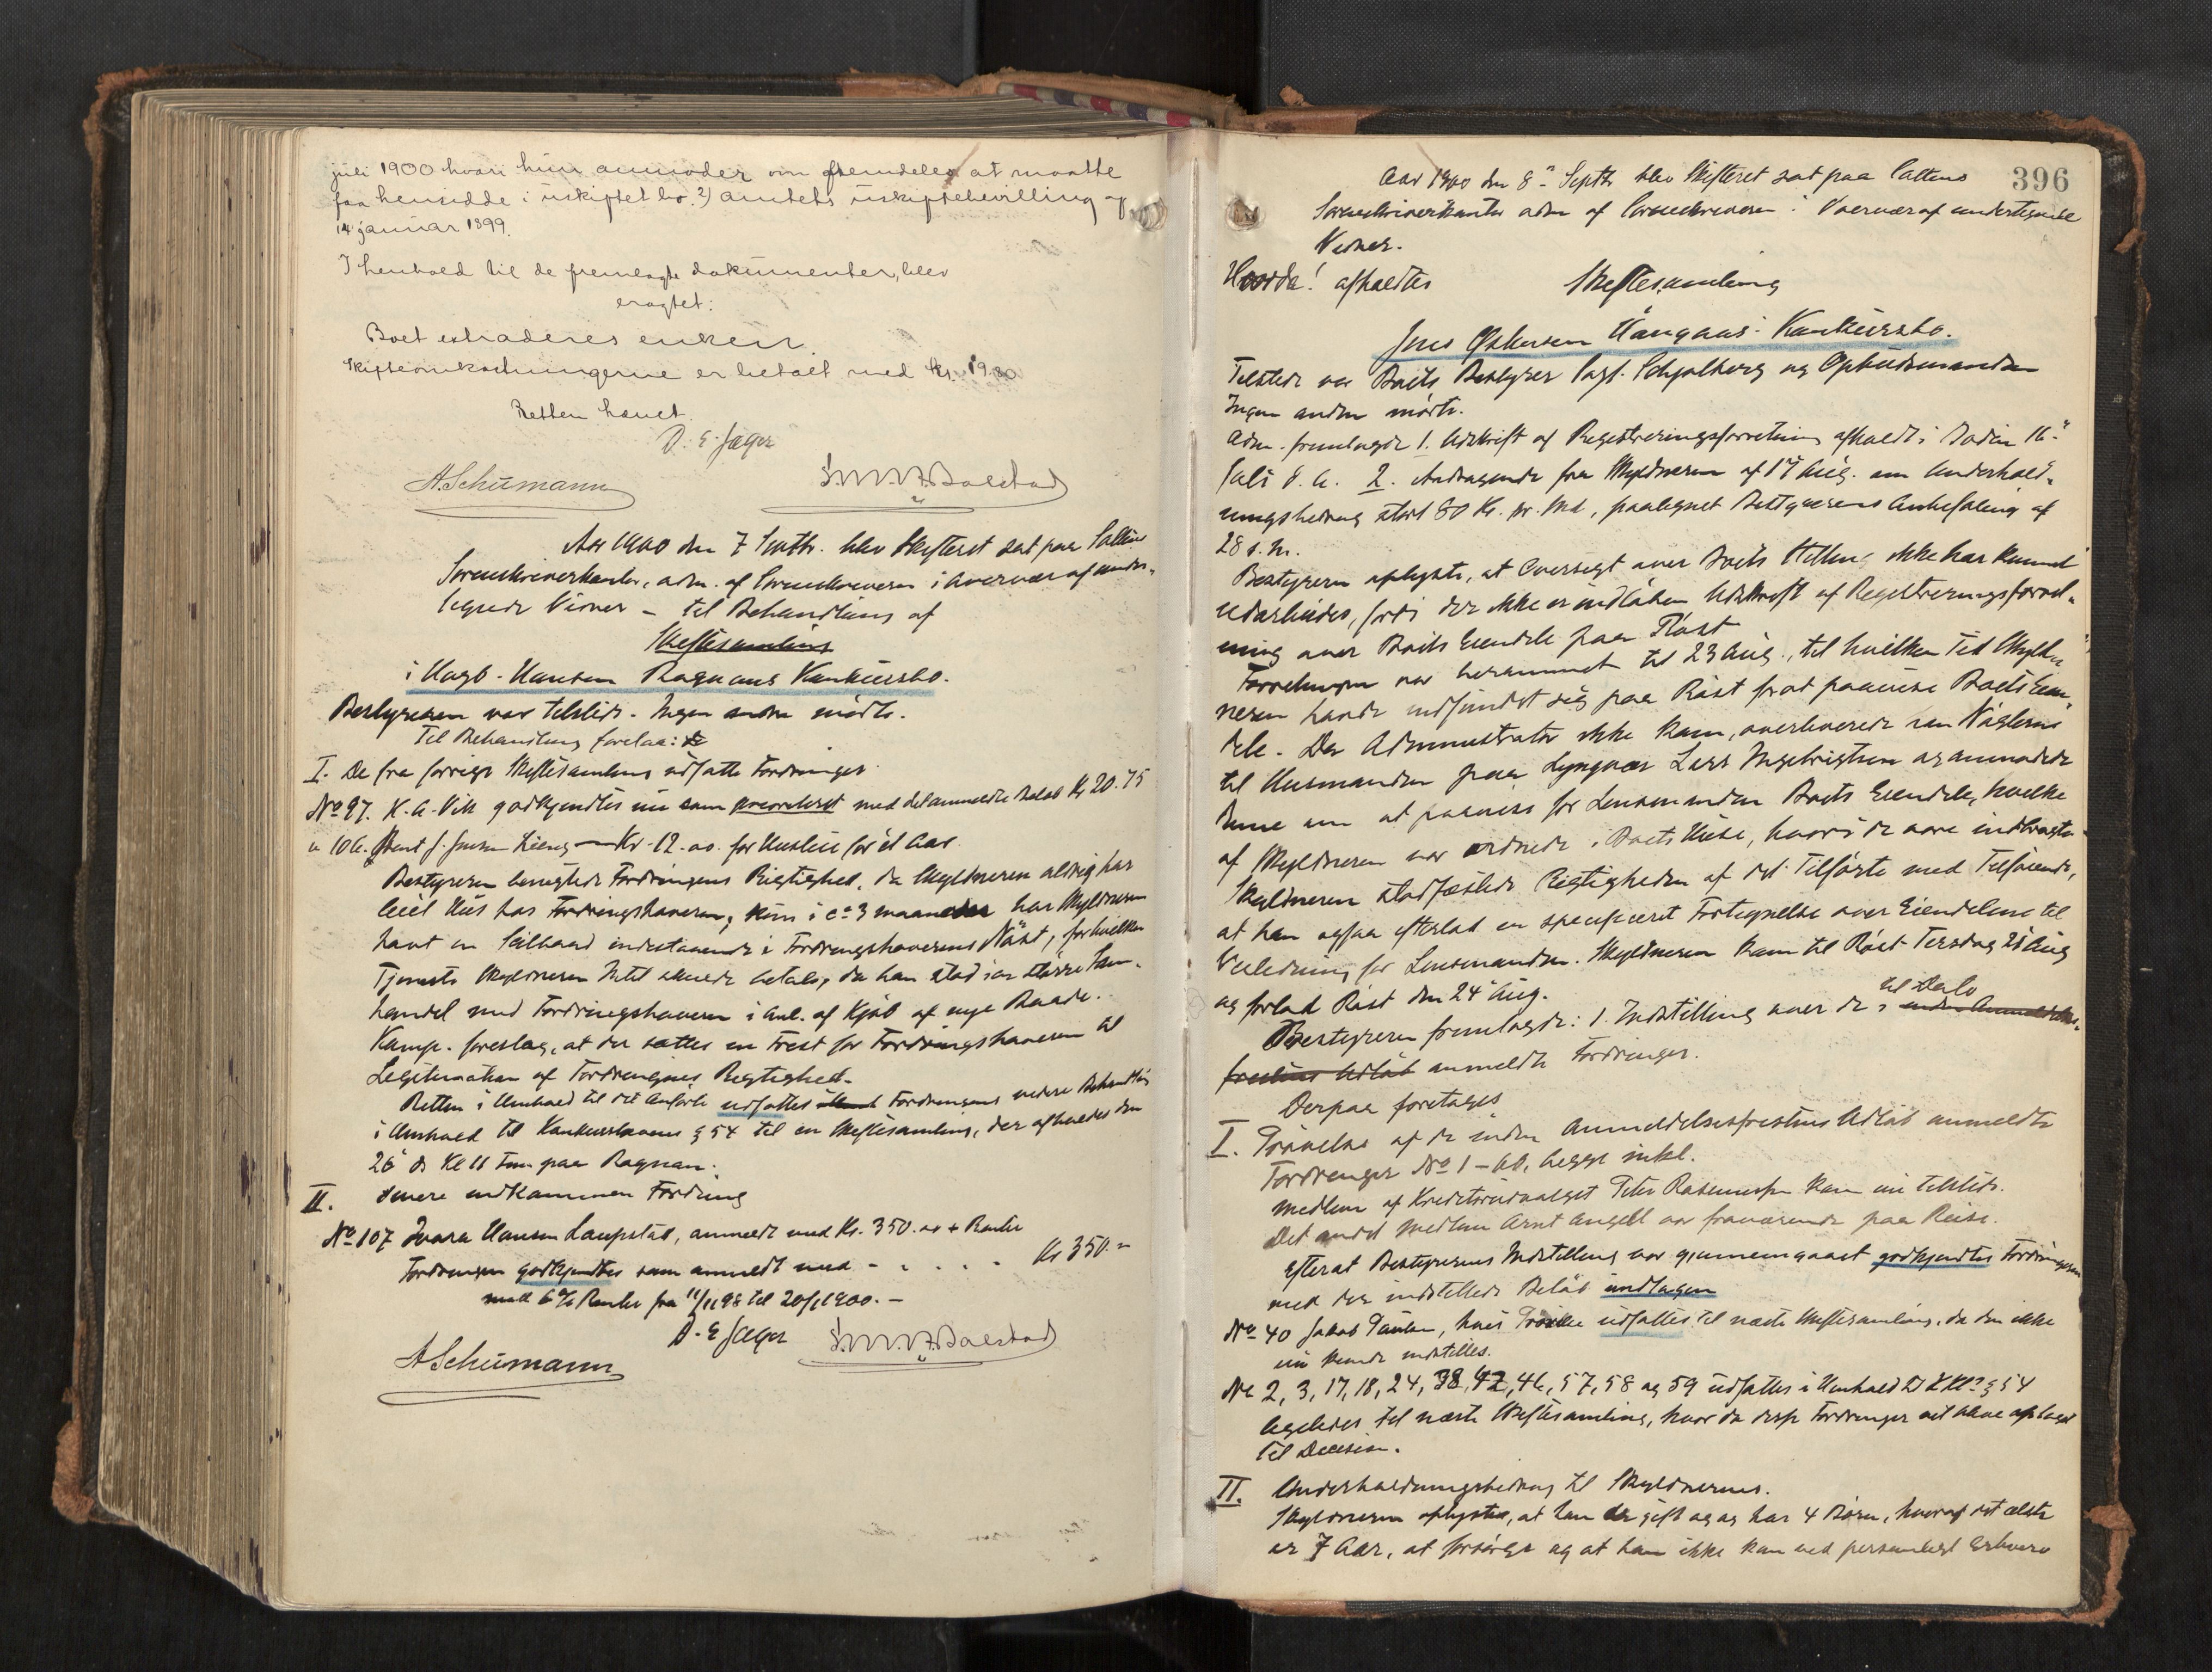 juli 1900 hvori hun anmoder om fremdeles at maatte
faa hensidde i uskiftet bo. 2) amtets uskiftebevilling af
14 januar 1899.
I henhold til de fremlagte dokumenter, blev
eragtet:
Boet extraderes enken.
Skifteomkostningerne er betalt med kr. 19.30
Retten hævet.
D. E. Jæger
A Schumann
Aar 1900 den 7 Septbr. blev Skifteret sat paa Saltens
Sorenskriverkontor, adm. af Sorenskriveren i Overvær af under-
tegnede Vidner – til Behandling af
Skiftesamling
i Hagb. Hansen Rognans Konkursbo.
Bestyreren var tilstede. Ingen andre mødte.
Til Behandling forelaa:
I. De fra forrige Skiftesamling udsatte Fordringer
No 97. K. A. Vik godkjendtes nu som prioriteret med det anmeldte Beløb Kr 20.75
" 106. J. Jensen Kr. 12.00 for Husleie for et Aar.
Bestyreren benegtede Fordringens Rigtighed, da Skyldneren aldrig har
leiet Hus hos Fordringshaveren, kun i ca 3 maaneder har Skyldneren
havt en Seilbaad indestaaende i Fordringshaverens Nøst, for hvilken
Tjeneste Skyldneren Intet skulde betale, da han stod i en større Sam-
handel med Fordringshaveren i Anl. af Kjøb af nye Baade.
Komp. foreslog, at der sattes en Frist for Fordringshaveren til
Legitimation af Fordringens Rigtighed.
Retten i Henhold til det Anførte udsattes Fordringens videre Behandling
i Henhold til Konkurslovens § 54 til en Skiftesamling, der afholdes den
26 ds Kl 11 Fm. paa Rognan.
II. Senere indkommen Fordring
No 107 Hansen Laupstad, anmeldt med Kr. 350.00 + Renter
Fordringen godkjendtes som anmeldt med - - - - - Kr 350.-
med 6% Renter fra 11/11 98 til 20/1 1900. –
D. E Jæger
A Schumann
396
Aar 1900 den 8de Septbr blev Skifteret sat paa Saltens
Sorenskriverkontor adm af Sorenskriveren i Overvær af undertegnede
Vidner.
Hvorda! afholdtes Skiftesamling
Jens Haugaas' Konkursbo.
Tilstede var Boets Bestyrer Sagf. Schjelberg og Opbudsmanden
Ingen andre mødte.
Adm. fremlagde 1. Udskrift af Registreringsforretning afholdt i Bodin 16.
Juli d. A. 2. Andragende fra Skyldneren af 17 Aug. om Underhold-
ningsbidrag stort 80 Kr. pr. Md, paategnet Bestyrerens Anbefaling af
28 s. M.
Bestyreren oplyste, at Oversigt over Boets Stilling ikke har kunnet
udarbeides, fordi der ikke er indløben Udskrift af Registreringsforret-
ning over Boets Eiendele paa Røst
Forretningen var berammet til 23 Aug., til hvilken Tid Skyld-
neren havde indfundet sig paa Røst for at paavise Boets Eien-
dele. Da Administrator ikke kom, overleverede han Nøglerne
til Husmanden paa Lyngvær Lars Ingebrigtsen og anmodede
denne om at paavise for Lensmanden Boets Eiendele, hvilke
af Skyldneren var ordnede i Boets Huse, hvori de vare indbragte.
Skyldneren stadfæstede Rigtigheden af det Tilførte med Tilføiende,
at han ogsaa efterlod en specificeret Fortegnelse over Eiendelene til
Veiledning for Lensmanden. Skyldneren kom til Røst Tirsdag 21 Aug
og forlod Røst den 24 Aug.
til Dato
Bestyreren fremlagde: 1. Indstilling over de inden Anmeldelses-
fristens Udløb anmeldte Fordringer.
Derpaa foretoges
I. Prøvelse af de inden Anmeldelsesfristens Udløb anmeldte
Fordringer No 1 – 60, begge inkl.
Medlem af Kreditorudvalget Peter Rasmussen kom nu tilstede.
Det andet Medlem Arnt Angell var fraværende paa Reise.
Efterat Bestyrerens Indstilling var gjennemgaaet godkjendtes Fordringerne
med det indstillede Beløb undtagen
No 40 Jakob Paulsen, hvis Prøvelse udsattes til næste Skiftesamling, da den ikke
nu kunde indstilles.
No 2, 3, 17, 18, 24, 38, 42, 46, 57, 58 og 59 udsattes i Henhold til § 54
ligeledes til næste Skiftesamling, hvor da disse Fordringer vil blive optaget
til Decision.
II. Underholdningsbidrag til Skyldneren.
Skyldneren oplyste, at han er gift og har 4 Børn, hvoraf det ældste
er 7 Aar, at forsørge og at han ikke kan ved personligt Erhverv